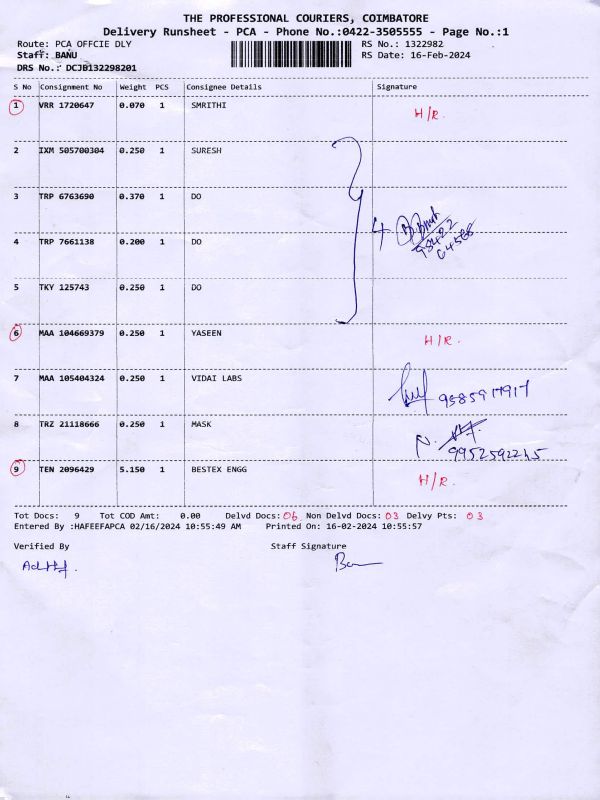 THE PROFESSIONAL COURIERS, COIMBATORE
Delivery Runsheet - PCA - Phone No.:0422-3505555 - Page No.:1
Route: PCA OFFCIE DLY RS No.: 1322982
Staff: BANU RS Date: 16-Feb-2024
DRS No.: DCJB132298201
S No Consignment No Weight PCS Consignee Details Signature
1 VRR 1720647 0.070 1 SMRITHI H/R.
2 IXM 505700304 0.250 1 SURESH
3 TRP 6763690 0.370 1 DO
4 TRP 7661138 0.200 1 DO 4
98422
64588
5 TKY 125743 0.250 1 DO
6 MAA 104669379 0.250 1 YASEEN H/R.
7 MAA 105404324 0.250 1 VIDAI LABS
8 TRZ 21118666 0.250 1 MASK
9 TEN 2096429 5.150 1 BESTEX ENGG H/R.
Tot Docs: 9 Tot COD Amt: 0.00 Delvd Docs: 06 Non Delvd Docs: 03 Delvy Pts: 03
Entered By :HAFEEFAPCA 02/16/2024 10:55:49 AM Printed On: 16-02-2024 10:55:57
Verified By Staff Signature